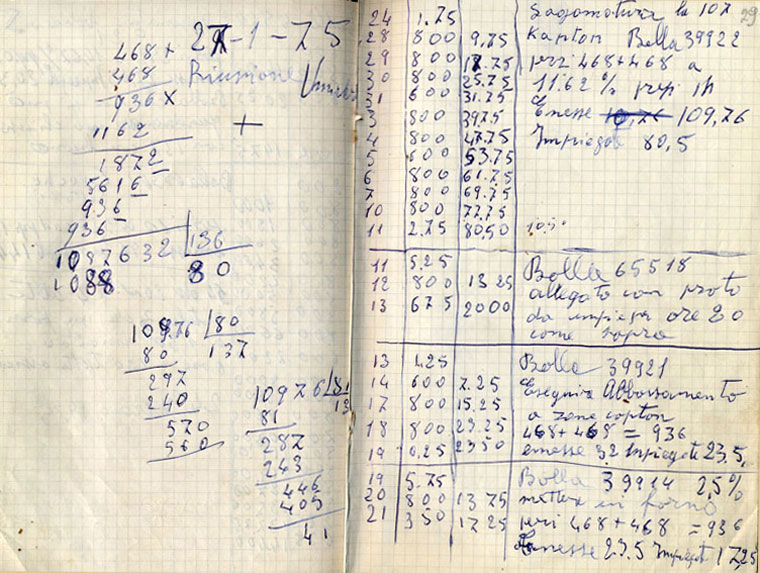 27-1-75
468+
468
936x
1162
1872
5616
936
936
1087632 136
1088 80
10976 80
80 137
297
240
570
560
10976 81
81 13
287
243
446
405
41
29
24 1.75 la 107
28 800 9.75 Kapton Bolla 39922
29 800 17.75 per 468+468 a
30 800 25.75 11.62 % prep 1h
31 600 31.75 Emesse 109,76
3 800 39.75 Impiegate 80,5
4 800 47.75
5 600 53.75
6 800 61.75
7 800 69.75
10 800 77.75
11 2.75 80.50 10.50
11 5.25 Bolla 65518
12 800 13 25 allegato con proto
13 675 2000 da impiegar ore 20
come sopra
13 4.25 Bolla 39921
14 600 7.25 Eseguire Abbassamento
17 800 15.25 a zone capton
18 800 23.25 468+468 = 936
19 0.25 2350 emesse 32 Impiegate 23.5,
19 5.75 Bolla 39914 2,5%
20 800 13 75 mettere in forno
21 350 17 25 per 468+468 = 936
Emesse 23.5 Impiegat 17,25